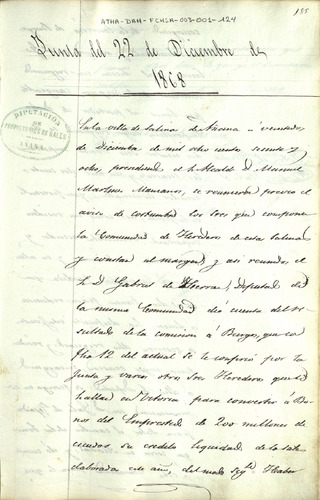 ATHA-DAH-FCHSA-003-001-124
135
Junta del 22 de Diciembre de
1868
DIPUTACION
DE
PROPIETARIOS DE SALES
AÑANA
En la villa de Salinas de Añana á veintidos
de Diciembre de mil ocho cientos sesenta y
ocho, presididos el Sr. Alcalde D. Manuel
Martinez Manzanos, se reunieron previo el
aviso de costumbre los Sres que componen
la Comunidad de Herederos de estas Salinas
y constan al margen, y asi reunidos el
Sr. D. Gabriel de Diputado de
la misma Comunidad dió cuenta del re-
sultado de la comision á Burgos, que con
fha 12 del actual se le confirió por la
Junta y varios otros Sres Herederos que se
hallan en Vitoria para convertir á Bo-
nos del Emprestito de 200 millones de
escudos su credito liquidado de la sal
elaborada este año, del modo sigte Haber